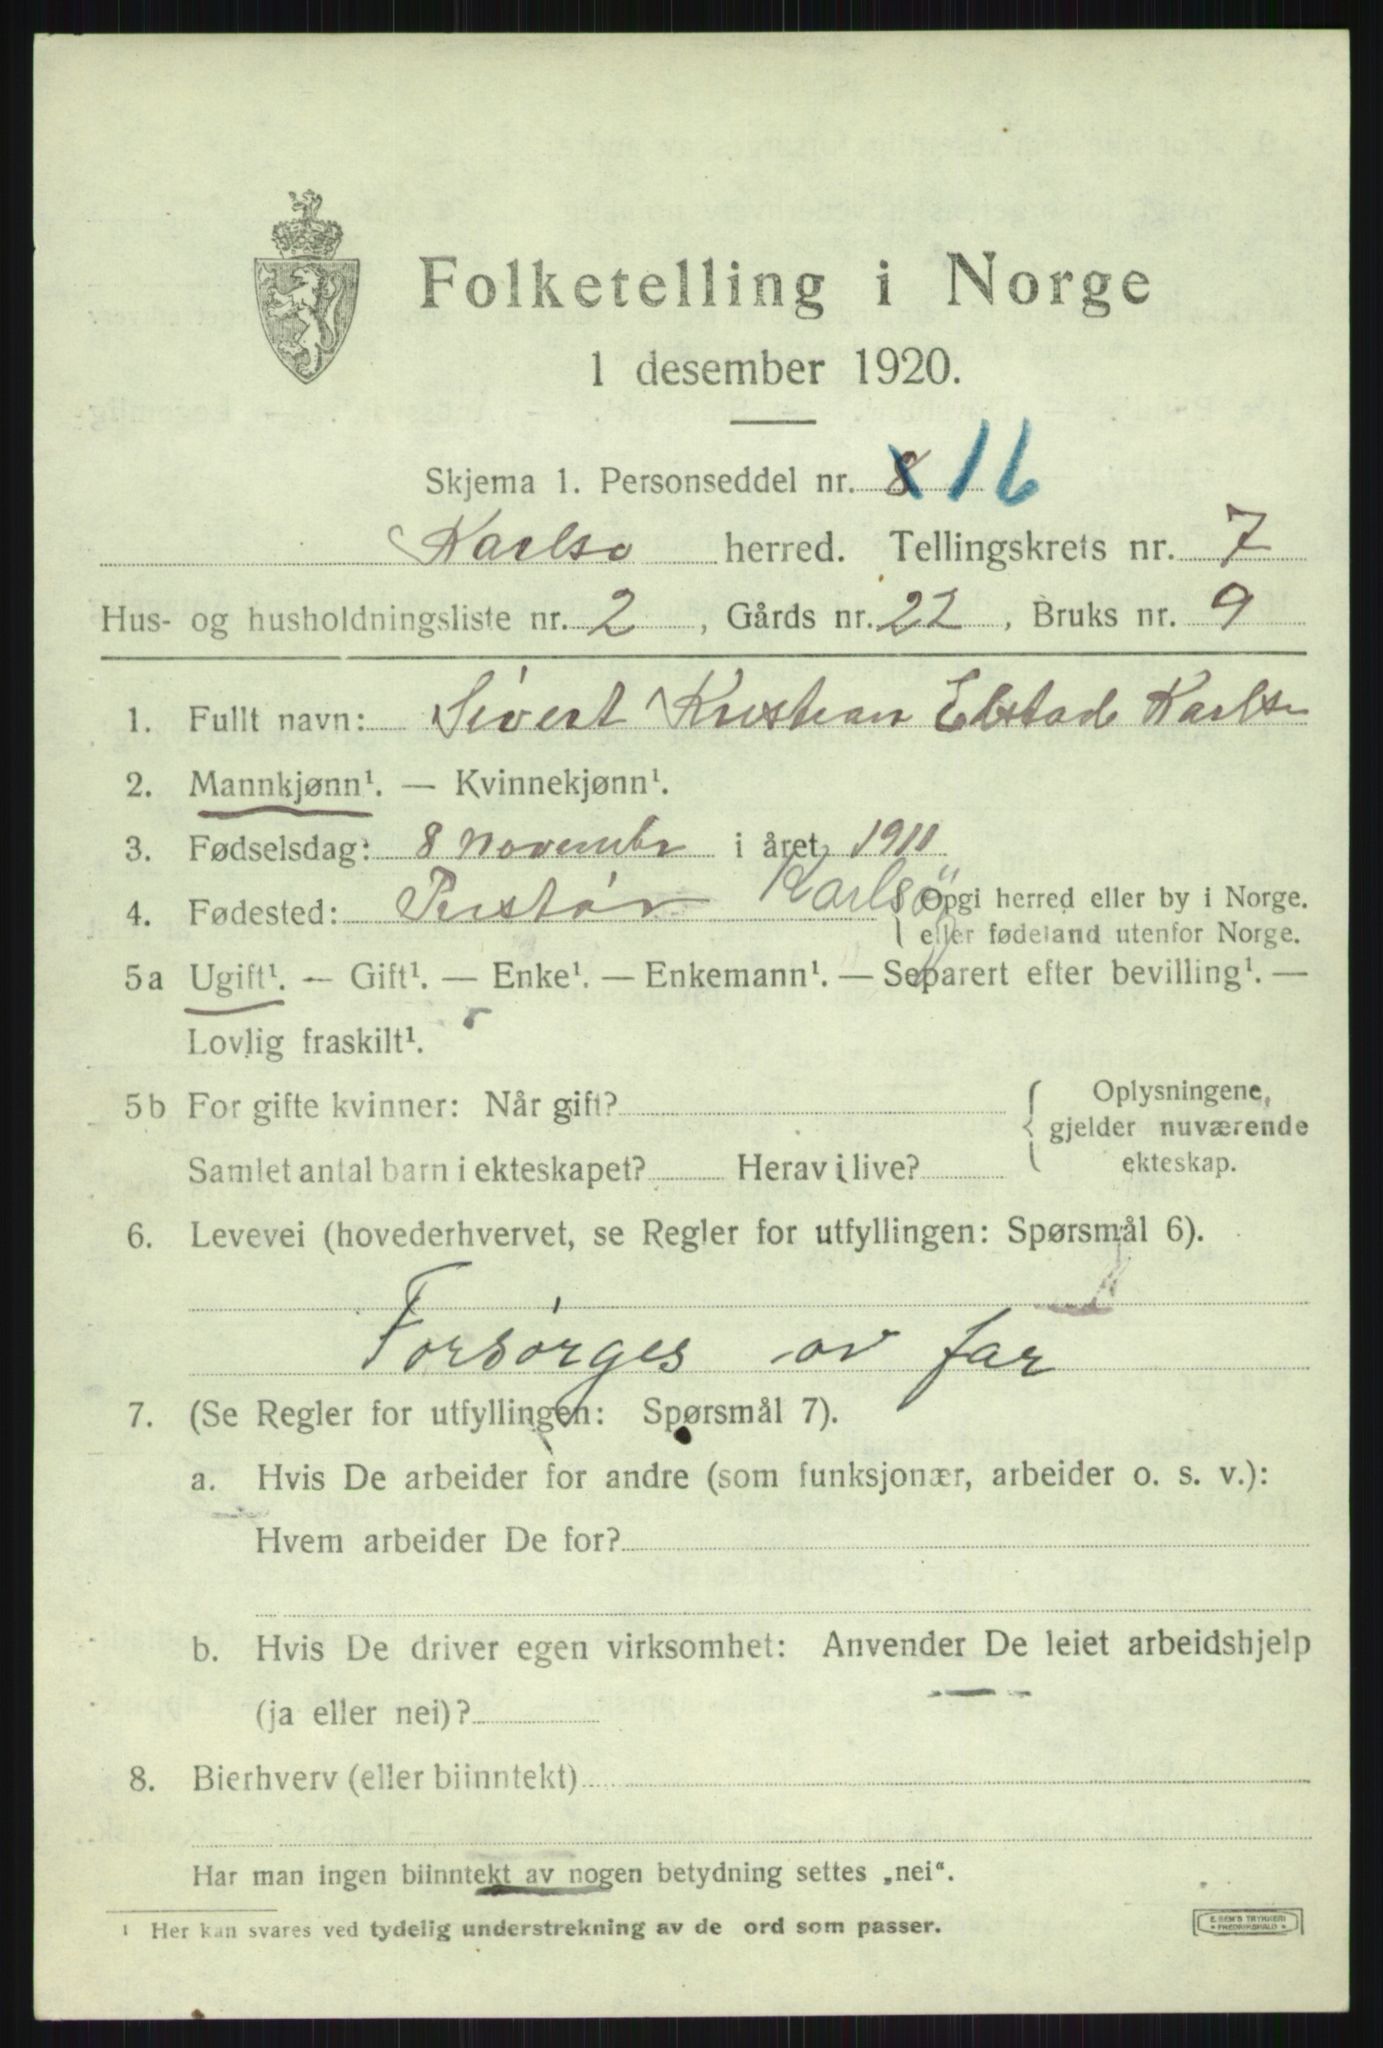 Folketelling i Norge
1 desember 1920.
Skjema 1. Personseddel nr. 8 16
Karlsø herred. Tellingskrets nr. 7
Hus- og husholdningsliste nr. 2, Gårds nr. 22, Bruks nr. 9
1. Fullt navn: Sivert Kristian Elstad Karlsen
2. Mannkjønn¹. — Kvinnekjønn¹.
3. Fødselsdag: 8 november i året 1910
4. Fødested: Karlsö { Opgi herred eller by i Norge.
eller fødeland utenfor Norge.
5a Ugift¹. — Gift¹. — Enke¹. — Enkemann¹. — Separert efter bevilling¹. —
Lovlig fraskilt¹.
5b For gifte kvinner: Når gift? { Oplysningene,
gjelder nuværende
Samlet antal barn i ekteskapet? Herav i live? ekteskap.
6. Levevei (hovederhvervet, se Regler for utfyllingen: Spørsmål 6).
Forsørges av far
7. (Se Regler for utfyllingen: Spørsmål 7).
a. Hvis De arbeider for andre (som funksjonær, arbeider o. s. v.):
Hvem arbeider De for?
b. Hvis De driver egen virksomhet: Anvender De leiet arbeidshjelp
(ja eller nei)?
8. Bierhverv (eller biinntekt)
Har man ingen biinntekt av nogen betydning settes „nei“.
¹ Her kan svares ved tydelig understrekning av de ord som passer.
E. SEM'S TRYKKERI
FREDRIKSHALD